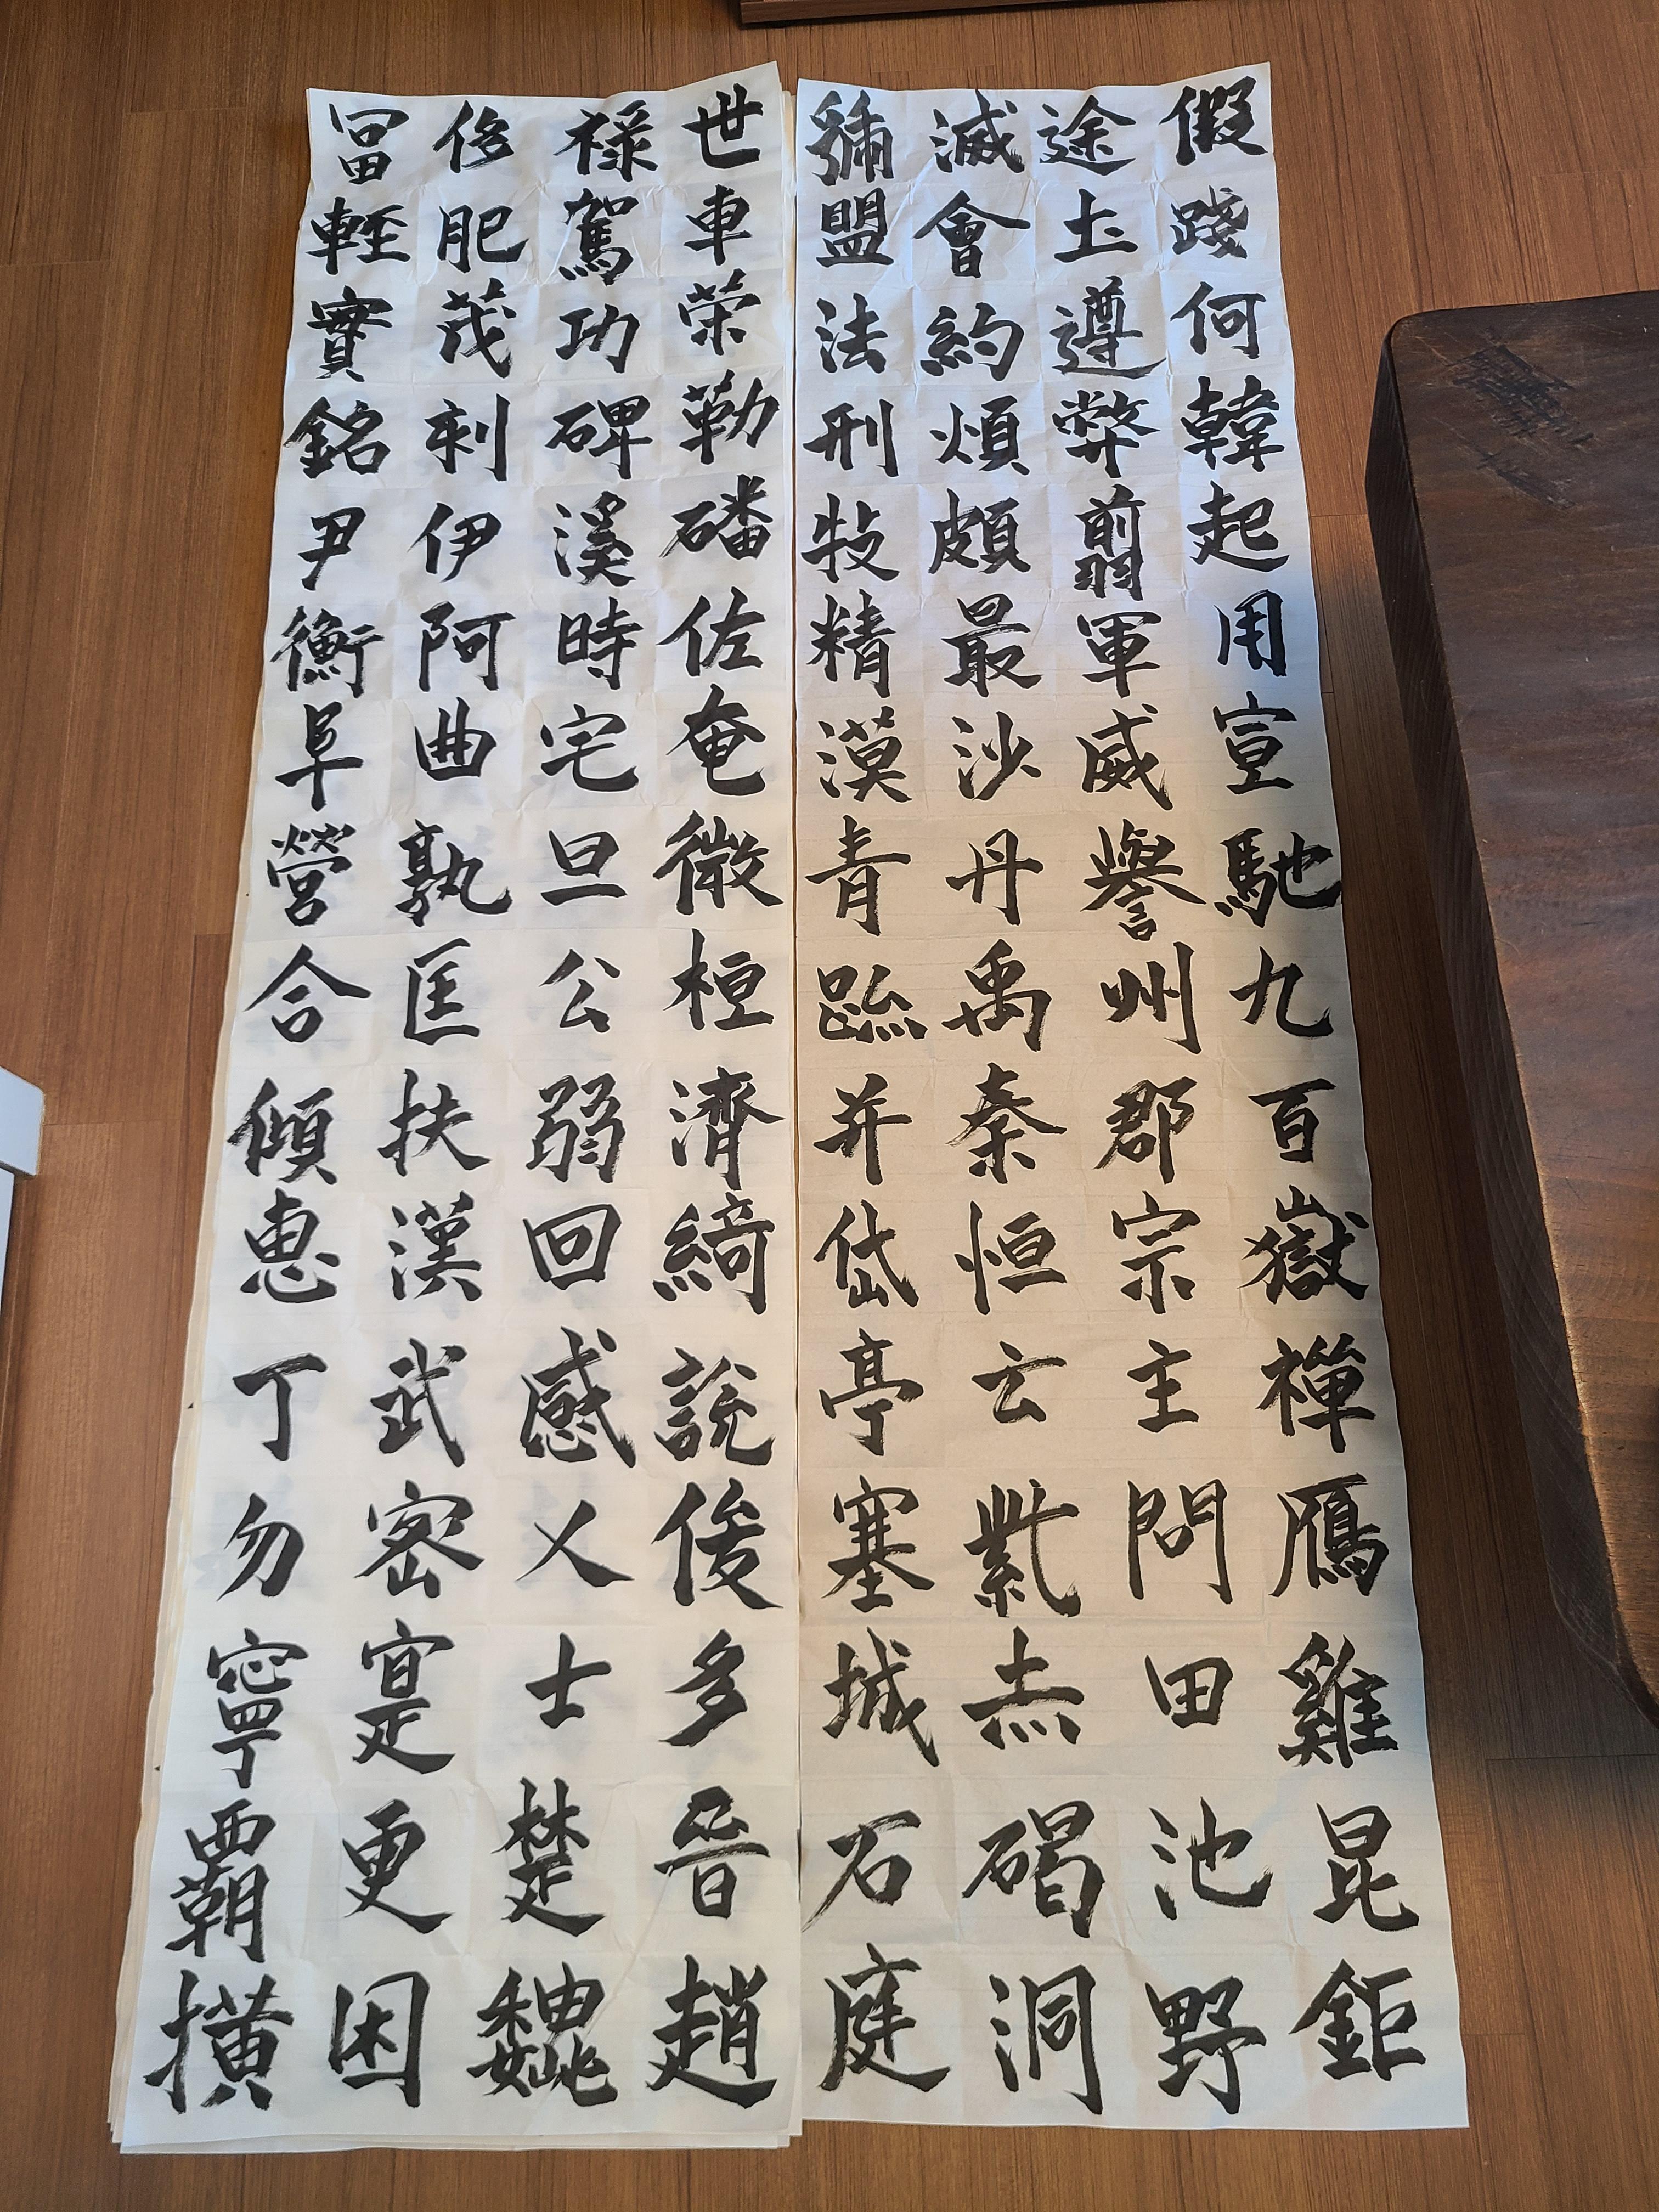 假途滅虢
踐土會盟
何遵約法
韓弊煩刑
起翦頗牧
用軍最精
宣威沙漠
馳譽丹青
九州禹跡
百郡秦并
嶽宗恒岱
禪主云亭
鴈問紫塞
雞田赤城
昆池碣石
鉅野洞庭
世禄侈冨
車駕肥輕
榮功茂實
勒碑刻銘
磻溪伊尹
佐時阿衡
奄宅曲阜
微旦孰營
桓公匡合
濟弱扶傾
綺回漢恵
說感武丁
俊乂密勿
多士寔寧
晉楚更覇
趙魏困橫